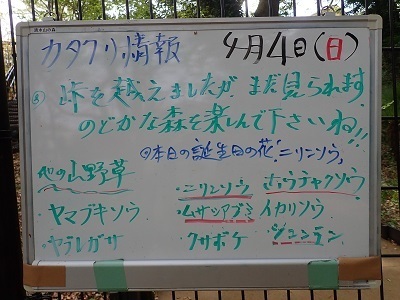 カタクリ情報 4月4日(日)
峠を越えましたが、まだ見られます。
のどかな森を楽しんで下さいね!!
◎本日の誕生日の花"ニリンソウ"
他の山野草
・ニリンソウ ・ホウチャクソウ
・ヤマブキソウ ・ムサシアブミ イカリソウ
・ヤブレガサ クサボケ ・シュンラン